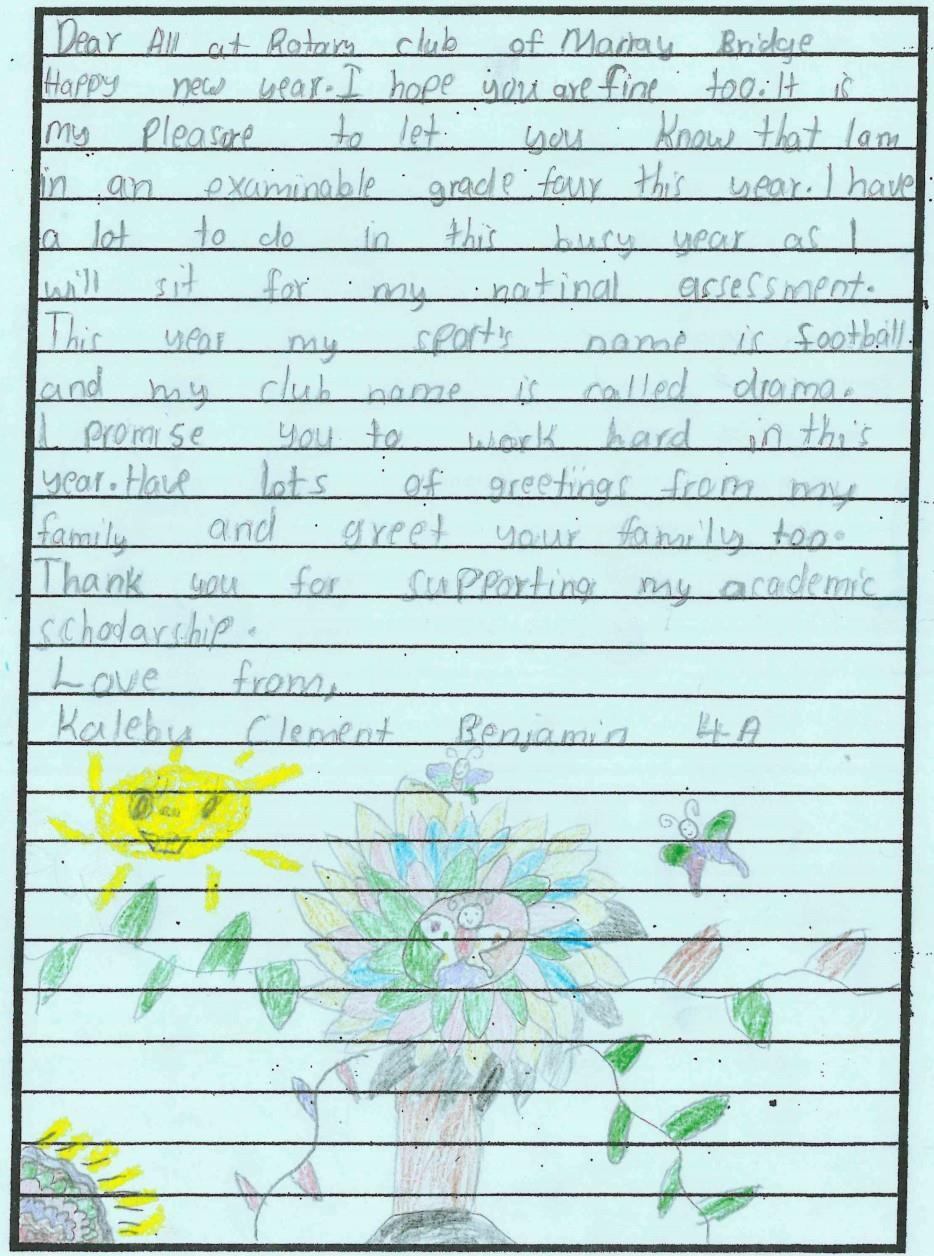 Dear All at Rotary club of Marray Bridge
Happy new year. I hope you are fine too. It is
my pleasure to let you Know that I am
in an examinable grade four this year. I have
a lot to do in this busy year as I
will sit for my natinal assessment.
This year my sport's name is football
and my club name is called drama.
I promise you to work hard in this
year. Have lots of greetings from my
family and greet your family too.
Thank you for supporting my academic
schodarship.
Love from,
Kaleby Clement Benjamin 4A